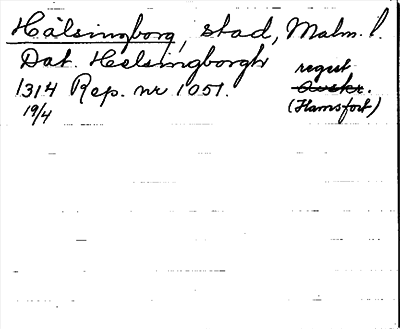 Hälsingborg, stad, Malm. l.
Dat. Helsingborgh regest
1314 Rep. nr 1051. Avskr.
19/4 (Hamsfort)